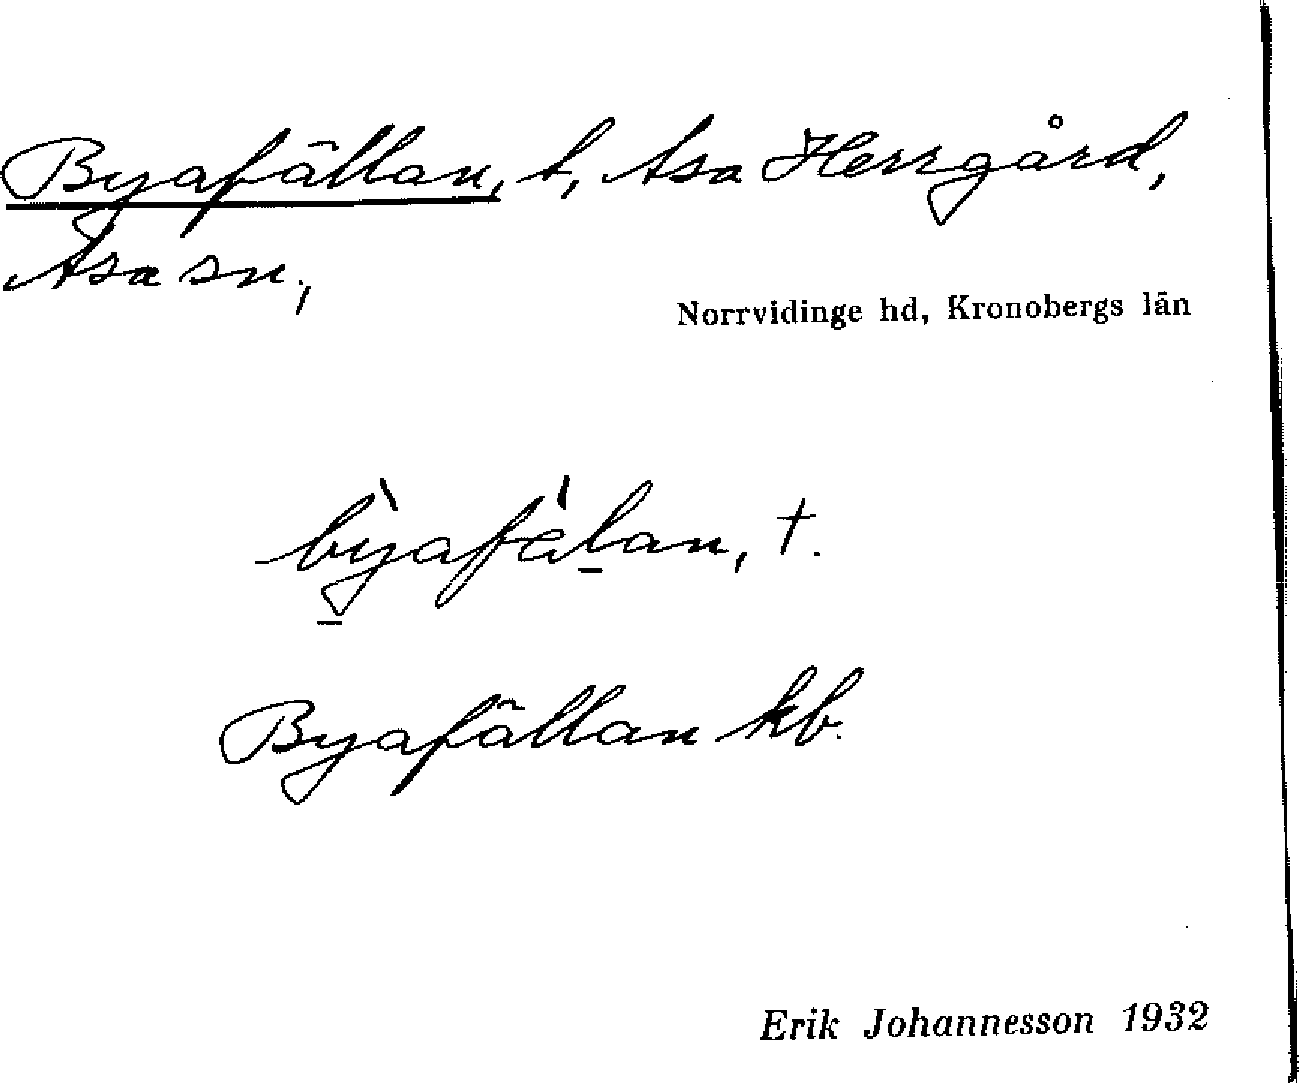 Byafällan, t, Asa Herrgård,
Asa sn,
Norrvidinge hd, Kronobergs län
bỳafàlan, t.
Byafällan kb.
Erik Johannesson 1932